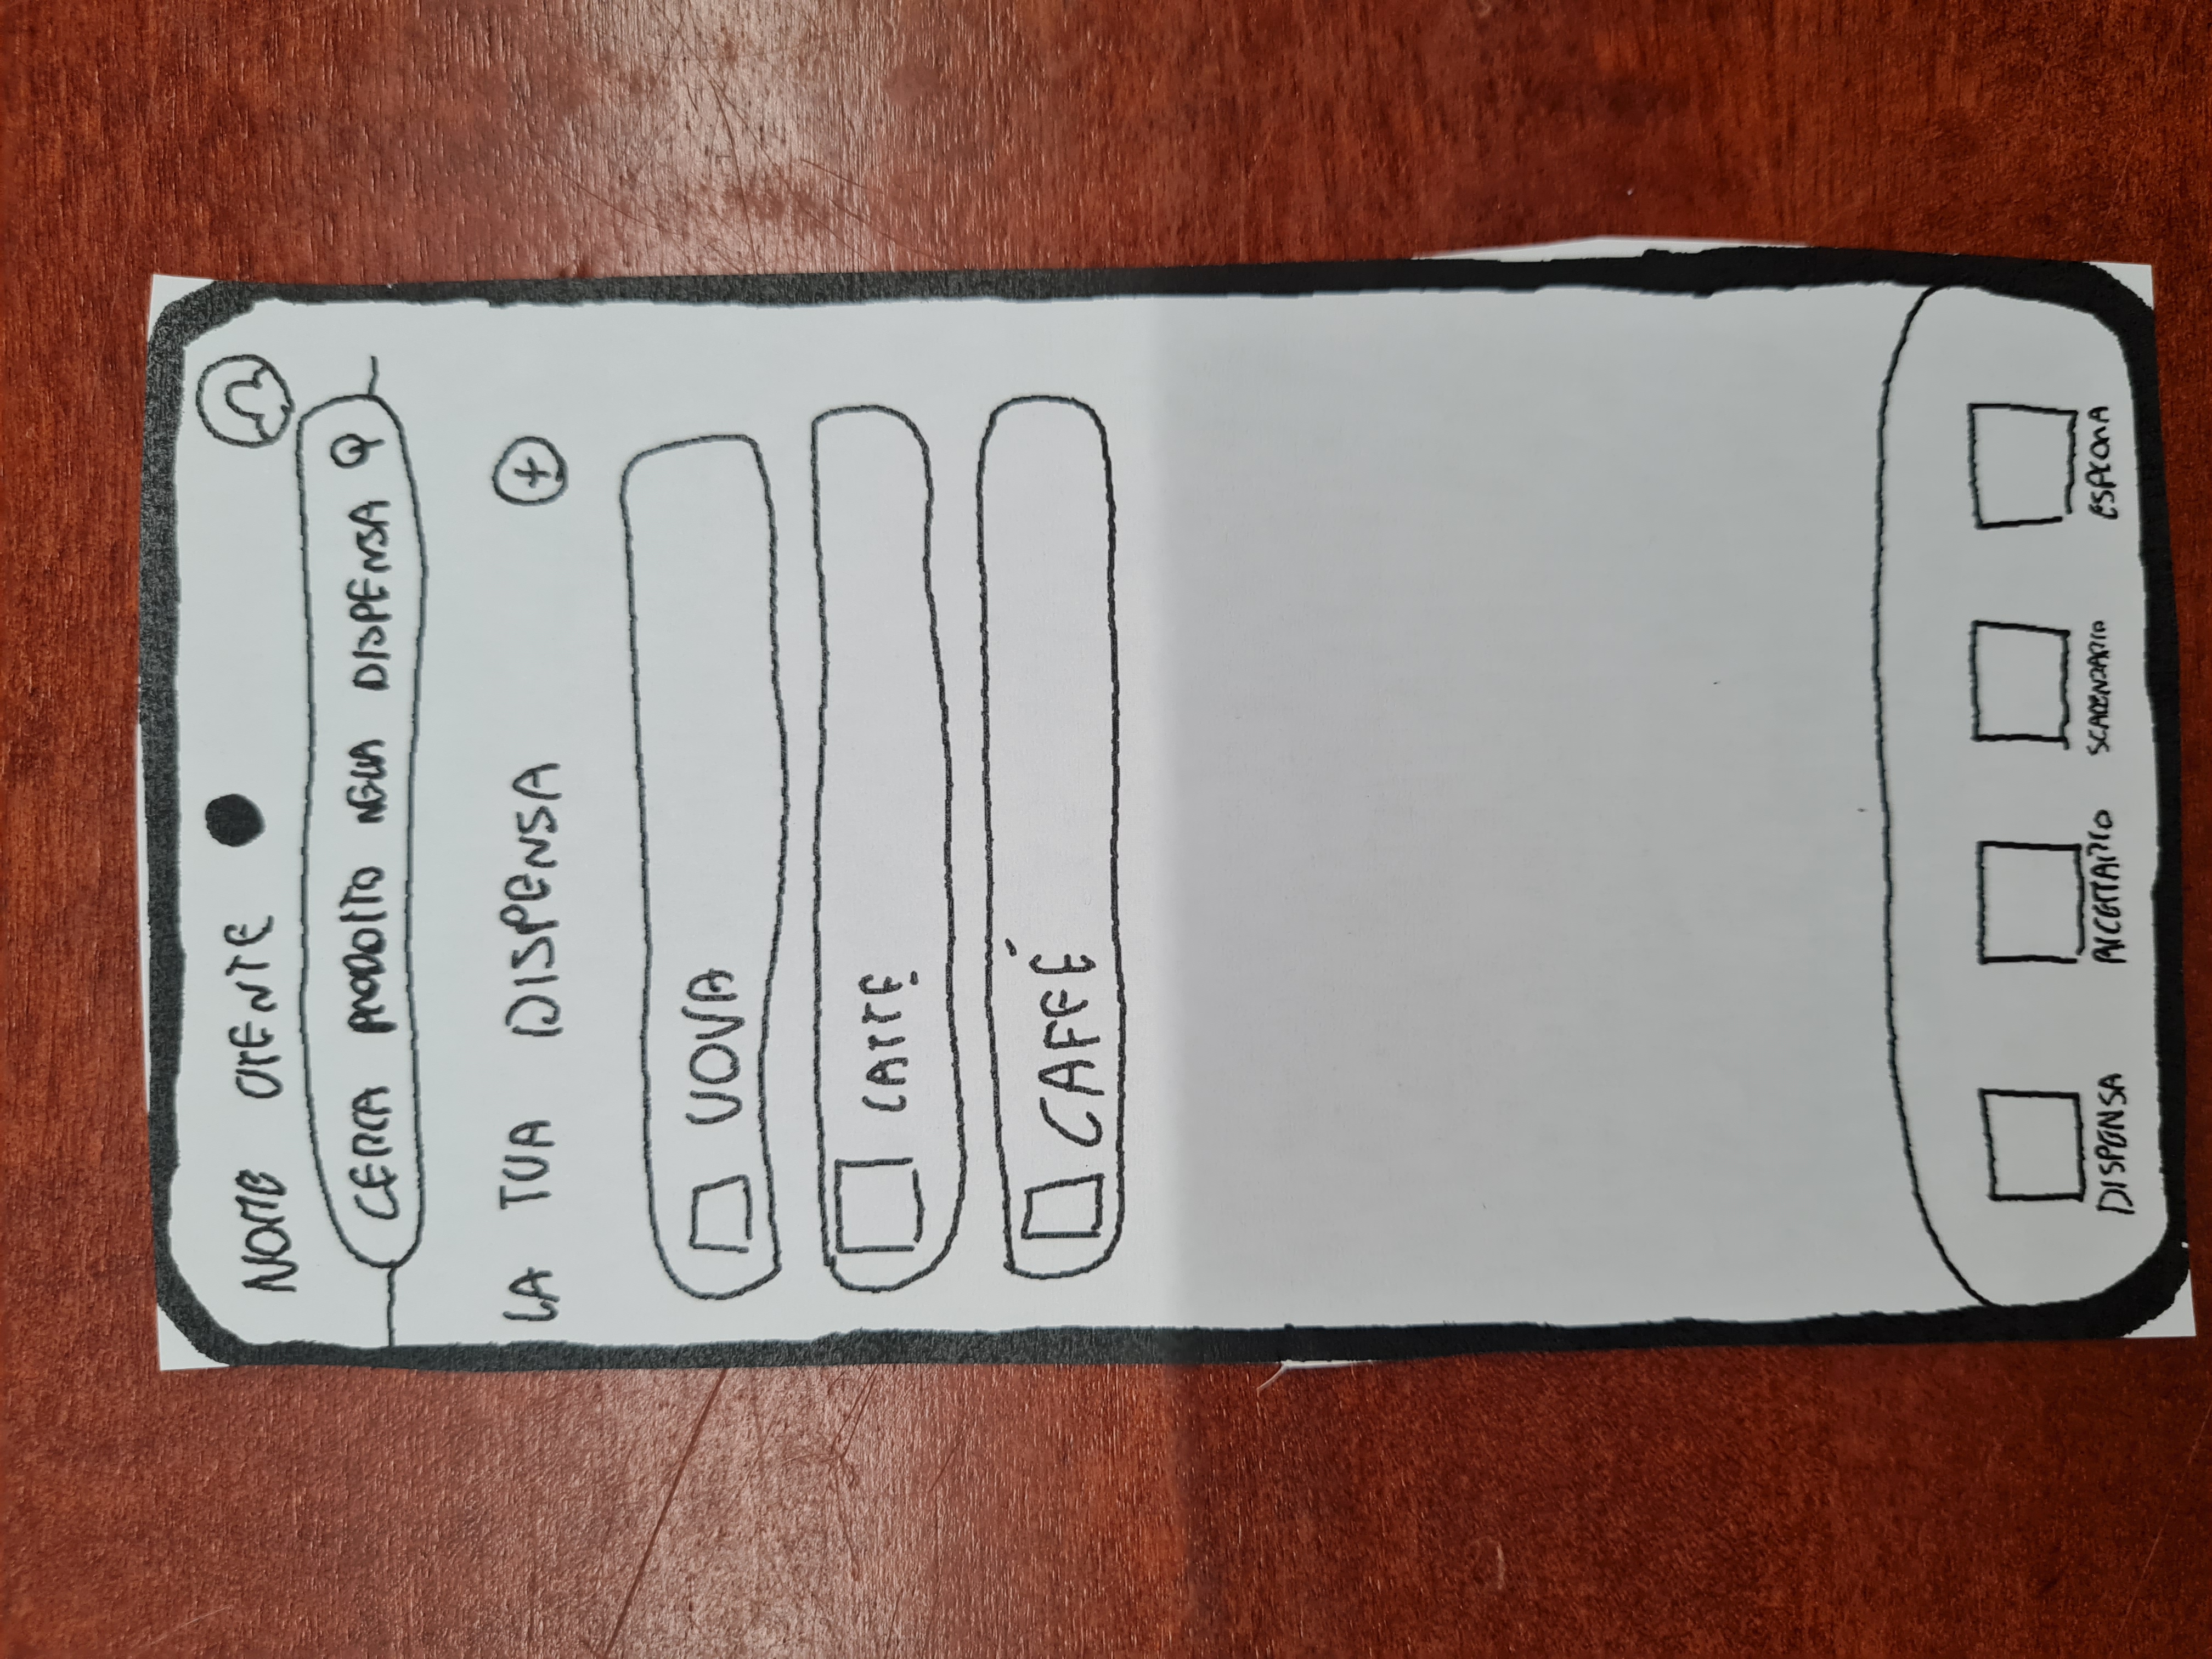 NOME UTENTE
CERCA PRODOTTO NELLA DISPENSA
LA TUA DISPENSA
UOVA
LATTE
CAFFÉ
DISPENSA RICETTARIO SCADENZARIO ESPLORA